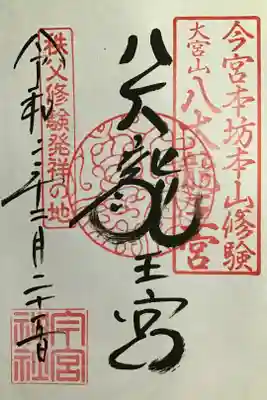 今宮本坊本山修験
大宮山 八大龍王宮
八大龍王宮
秩父修験発祥の地
令和二年二月二十五日
今宮
神社